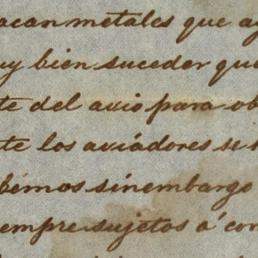 acan metales que ay
uy bien suceder que
te del avio para ob
te los aviadores se
bemos sinembargo
empre sujetos á con